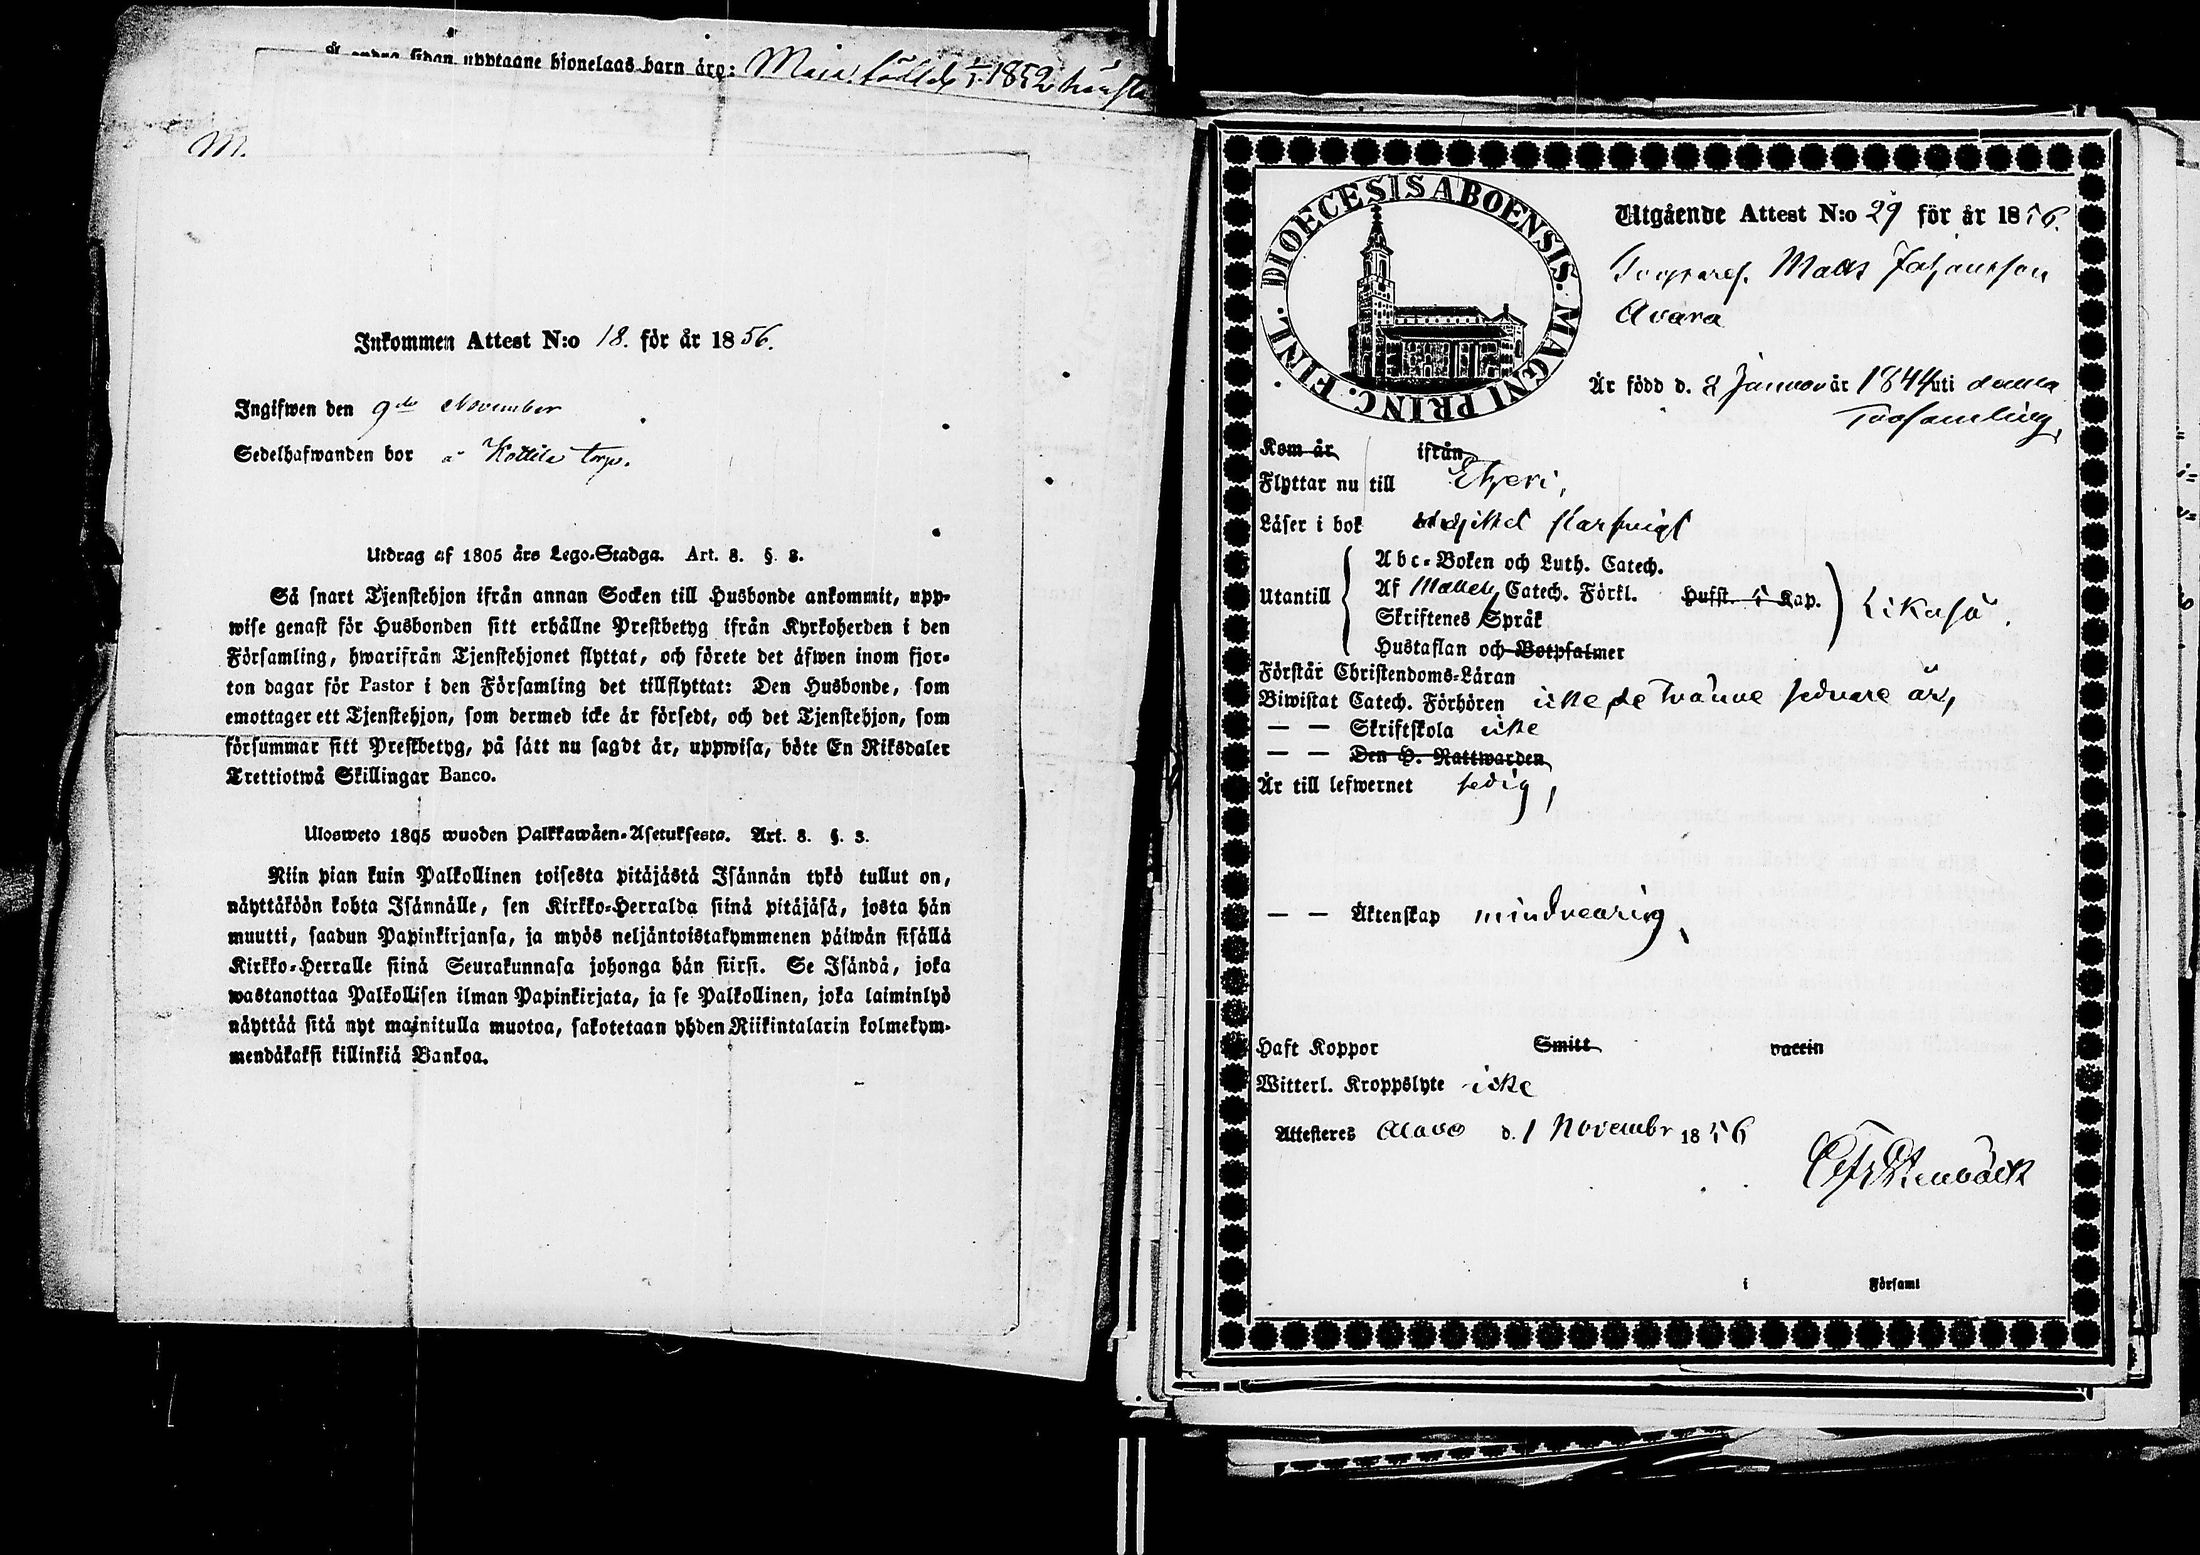 sidan upptagne hjonelags barn äro: Maia född d. 1/1 1852
M.
Inkommen Attest N:o 18. för år 1856.
Ingifwen den 9de November
Sedelhafwanden bor å Kottila torp.
Utdrag af 1805 års Lego-Stadga. Art. 8. §. 8.
Så snart Tjenstehjon ifrån annan Socken till Husbonde ankommit, upp-
wise genast för Husbonden sitt erhållne Prestbetyg ifrån Kyrkoherden i den
Församling, hwarifrån Tjenstehjonet flyttat, och förete det äfwen inom fjor-
ton dagar för Pastor i den Församling det tillflyttat: Den Husbonde, som
emottager ett Tjenstehjon, som dermed icke är försedt, och det Tjenstehjon, som
försummar sitt Prestbetyg, på sätt nu sagdt är, uppwisa, böte En Riksdaler
Trettiotwå Skillingar Banco.
Ulosweto 1805 wuoden Palkkawäen-Asetuksesta. Art. 8. §. 3.
Niin pian kuin Palkollinen toisesta pitäjästä Isännän tykö tullut on,
näyttäköön kohta Isännälle, sen Kirkko-Herralda siinä pitäjäsä, josta hän
muutti, saadun Papinkirjansa, ja myös neljäntoistakymmenen päiwän sisällä
Kirkko-Herralle siinä Seurakunnasa johonga hän siirsi. Se Isändä, joka
wastanottaa Palkollisen ilman Papinkirjata, ja se Palkollinen, joka laiminlyö
näyttää sitä nyt mainitulla muotoa, sakotetaan yhden Riikintalarin kolmekym-
mendäkaksi killinkiä Bankoa.
DIOECESIS ABOENSIS. MAGNI PRINC. FINL.
Utgående Attest N:o 29 för år 1856.
Matts Johansson
Avara
Är född d. 8 Januari år 1844 uti denna
Församling,
Kom år ifrån
Flyttar nu till Etseri,
Läser i bok starfvigt
Abc-Boken och Luth. Catech.
Utantill Af Catech. Förkl. Hufst. i Kap. Likaså.
Skriftenes Språk
Hustaflan och Botpsalmer
Förstår Christendoms-Läran
Biwistat Catech. Förhören icke de tvänne sednare år,
— — Skriftskola icke
— — Den H. Nattwarden
Är till lefwernet sedig,
— — Äktenskap mindreårig,
Haft Koppor Smitt vaccin
Witterl. Kroppslyte icke
Attesteres Alavo d. 1 Novembr 1856
Stenbäck
i Församl